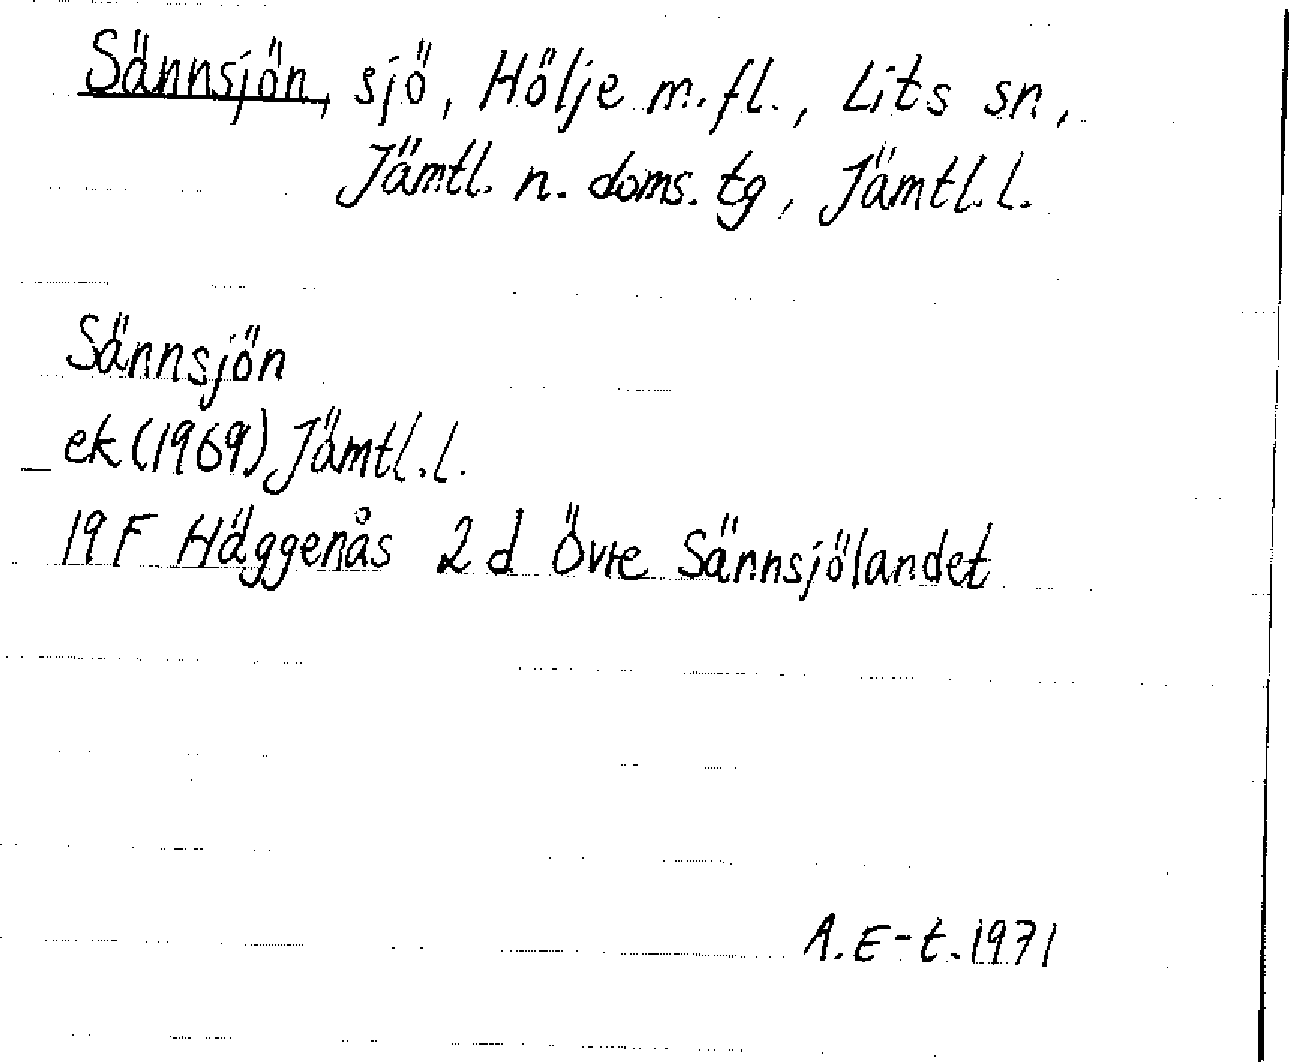 Sännsjön, sjö, Hölje m.fl., Lits sn,
Jämtl. n. doms. tg, Jämtl.l.
Sännsjön
ek (1969) Jämtl.l.
19 F Häggenås 2 d Övre Sännsjölandet
A.E-t.1971